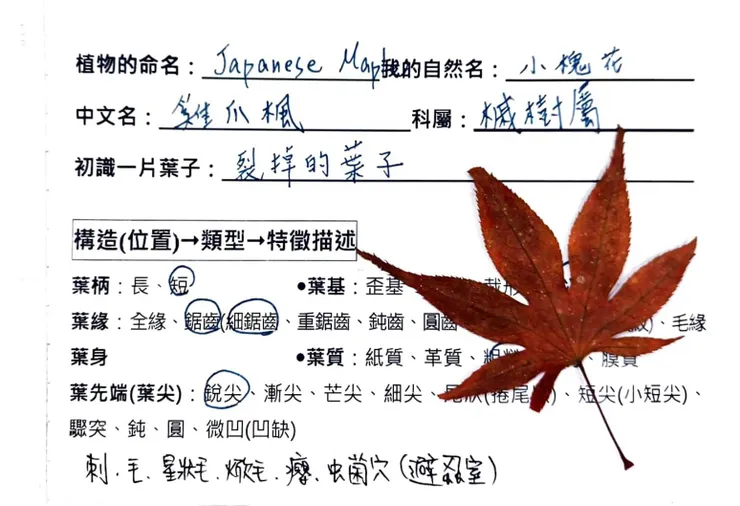 植物的命名：Japanese Maple 我的自然名：小槐花
中文名：雞爪楓 科屬：槭樹屬
初識一片葉子：裂掉的葉子
構造(位置)→類型→特徵描述
葉柄：長、短 •葉基：歪基
葉緣：全緣、鋸齒(細鋸齒、重鋸齒、鈍齒、圓齒 、毛緣
葉身 •葉質：紙質、革質、粗 、膜質
葉先端(葉尖)：銳尖、漸尖、芒尖、細尖、尾狀(捲尾 、短尖(小短尖)、
驟突、鈍、圓、微凹(凹缺)
刺、毛、星狀毛、焮毛、癭、虫菌穴(避 室)